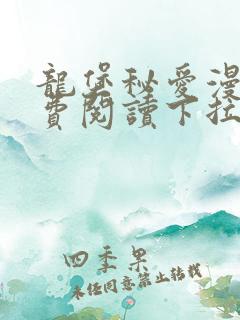 龍堡秘愛漫
費閱讀下拉
四季果
未经同意禁止转载